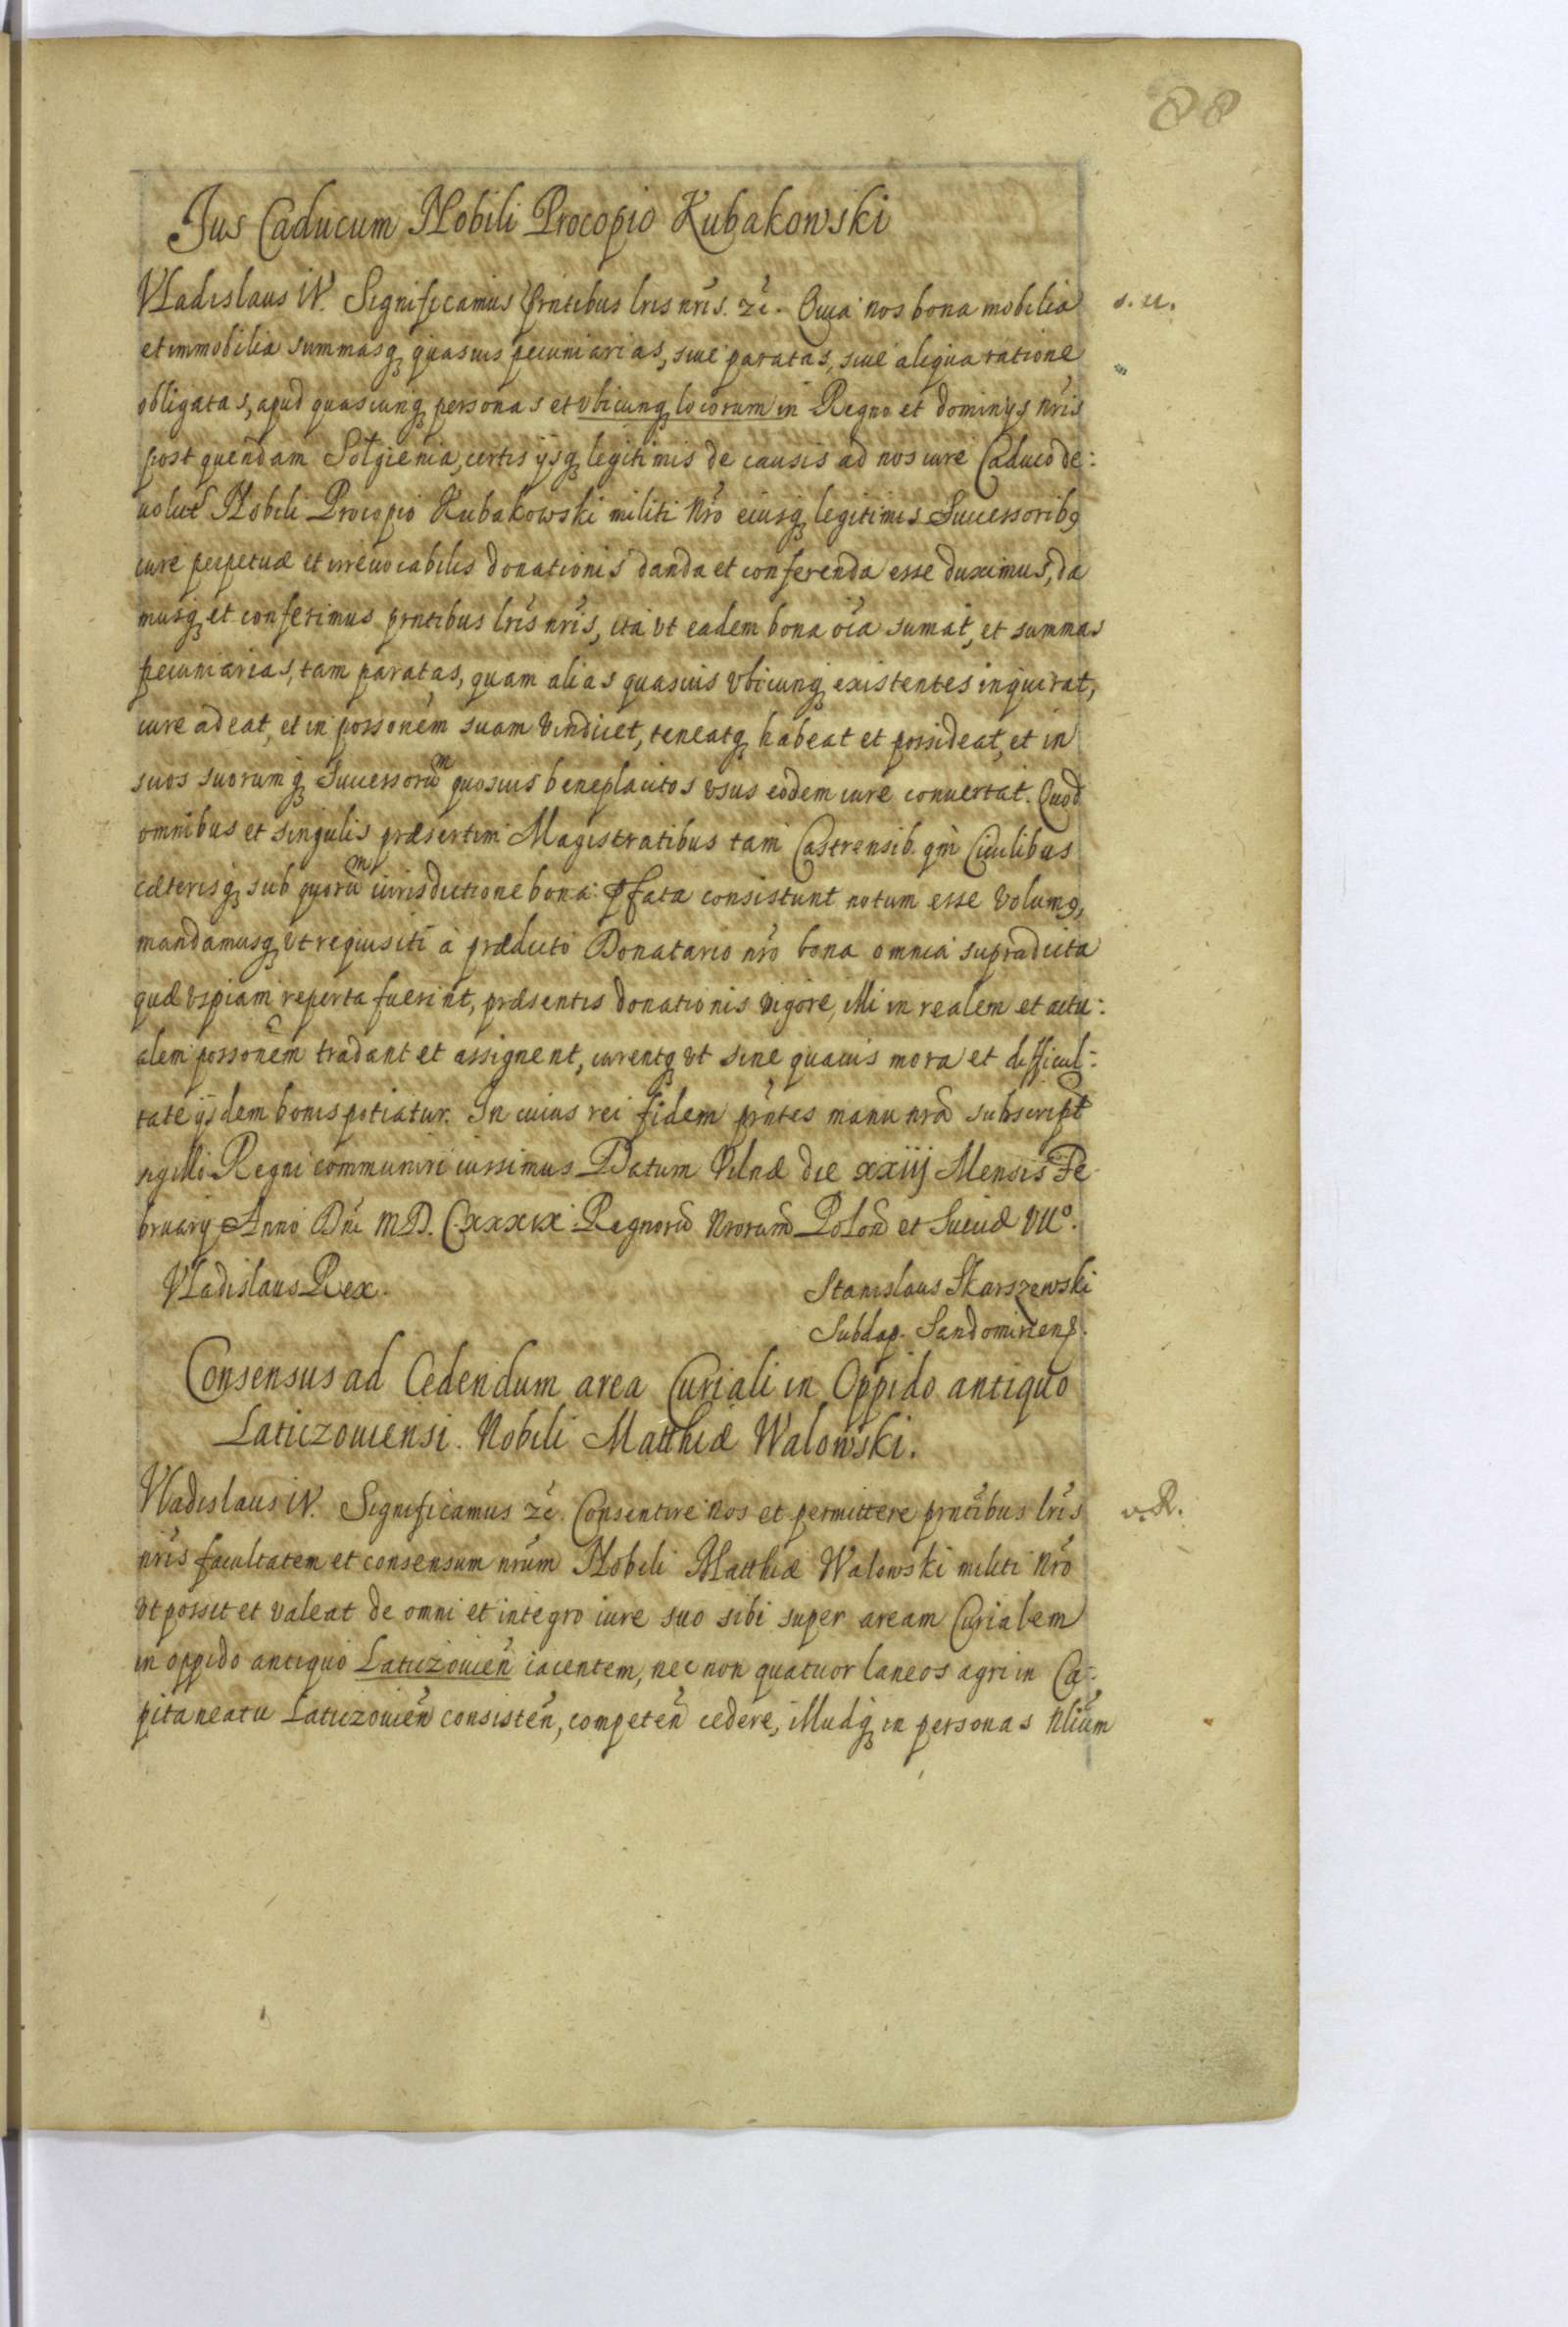 88
Jus Caducum Nobili Procopio Kubakowski
Vladislaus IV. Significamus prntibus lris nris. zc. Quia nos bona mobilia
s. u.
et immobilia summasq quasuis pecuniarias, siue paratas, siue aliqua ratione
obligatas, apud quascunq personas et vbicunq locorum in Regno et dominijs nris
post quendam Solgienia, certis ijsq legitimis de causis ad nos iure Caduco de:
uolut Nobili Procopio Kubakowski militi nro eiusq legitimis Successorib9
iure perpetuæ et irreuocabilis donationis danda et conferenda esse duximus, da
musq et conferimus prntibus lris nris, ita vt eadem bona oia sumat, et summas
pecuniarias, tam paratas, quam alias quasuis vbicunq existentes inquirat,
iure adeat, et in possonem suam vindicet, teneatq habeat et possideat, et in
suos suorumq Successorum quosuis beneplacitos vsus eodem iure conuertat. Quod
omnibus et singulis præsertim Magistratibus tam Castrensib. qm Ciuilibus
cæterisq sub quorum iurisdictione bona pfata consistunt notum esse volum9,
mandamusq vt requisiti a prædicto Donatario nro bona omnia supradicta
quæ vspiam reperta fuerint, præsentis donationis vigore, illi in realem et actu:
alem possonem tradant et assignent, curentq vt sine quauis mora et difficul:
tate ijsdem bonis potiatur. In cuius rei fidem prntes manu nra subscript
sigilli Regni communiri iussimus Datum Vilnæ die xxiij Mensis Fe
bruarij Anno Dni MD.CXXXIX Regnoru nrorum Polon et Sueciæ VII°.
Vladislaus Rex.
Stanislaus Skarszewski
Subdap. Sandomirien.
Consensus ad Cedendum area Curiali in Oppido antiquo
Laticzouiensi. Nobili Matthiæ Walowski.
Vladislaus IV. Significamus zc. Consentire nos et permittere prntibus lris
v. R.
nris facultatem et consensum nrum Nobili Matthiæ Walowski militi nro
vt possit et valeat de omni et integro iure suo sibi super aream Curialem
in oppido antiquo Laticzouien iacentem, nec non quatuor laneos agri in Ca:
pitaneatu Laticzouien consisten, competen cedere, illudq in personas Nlium